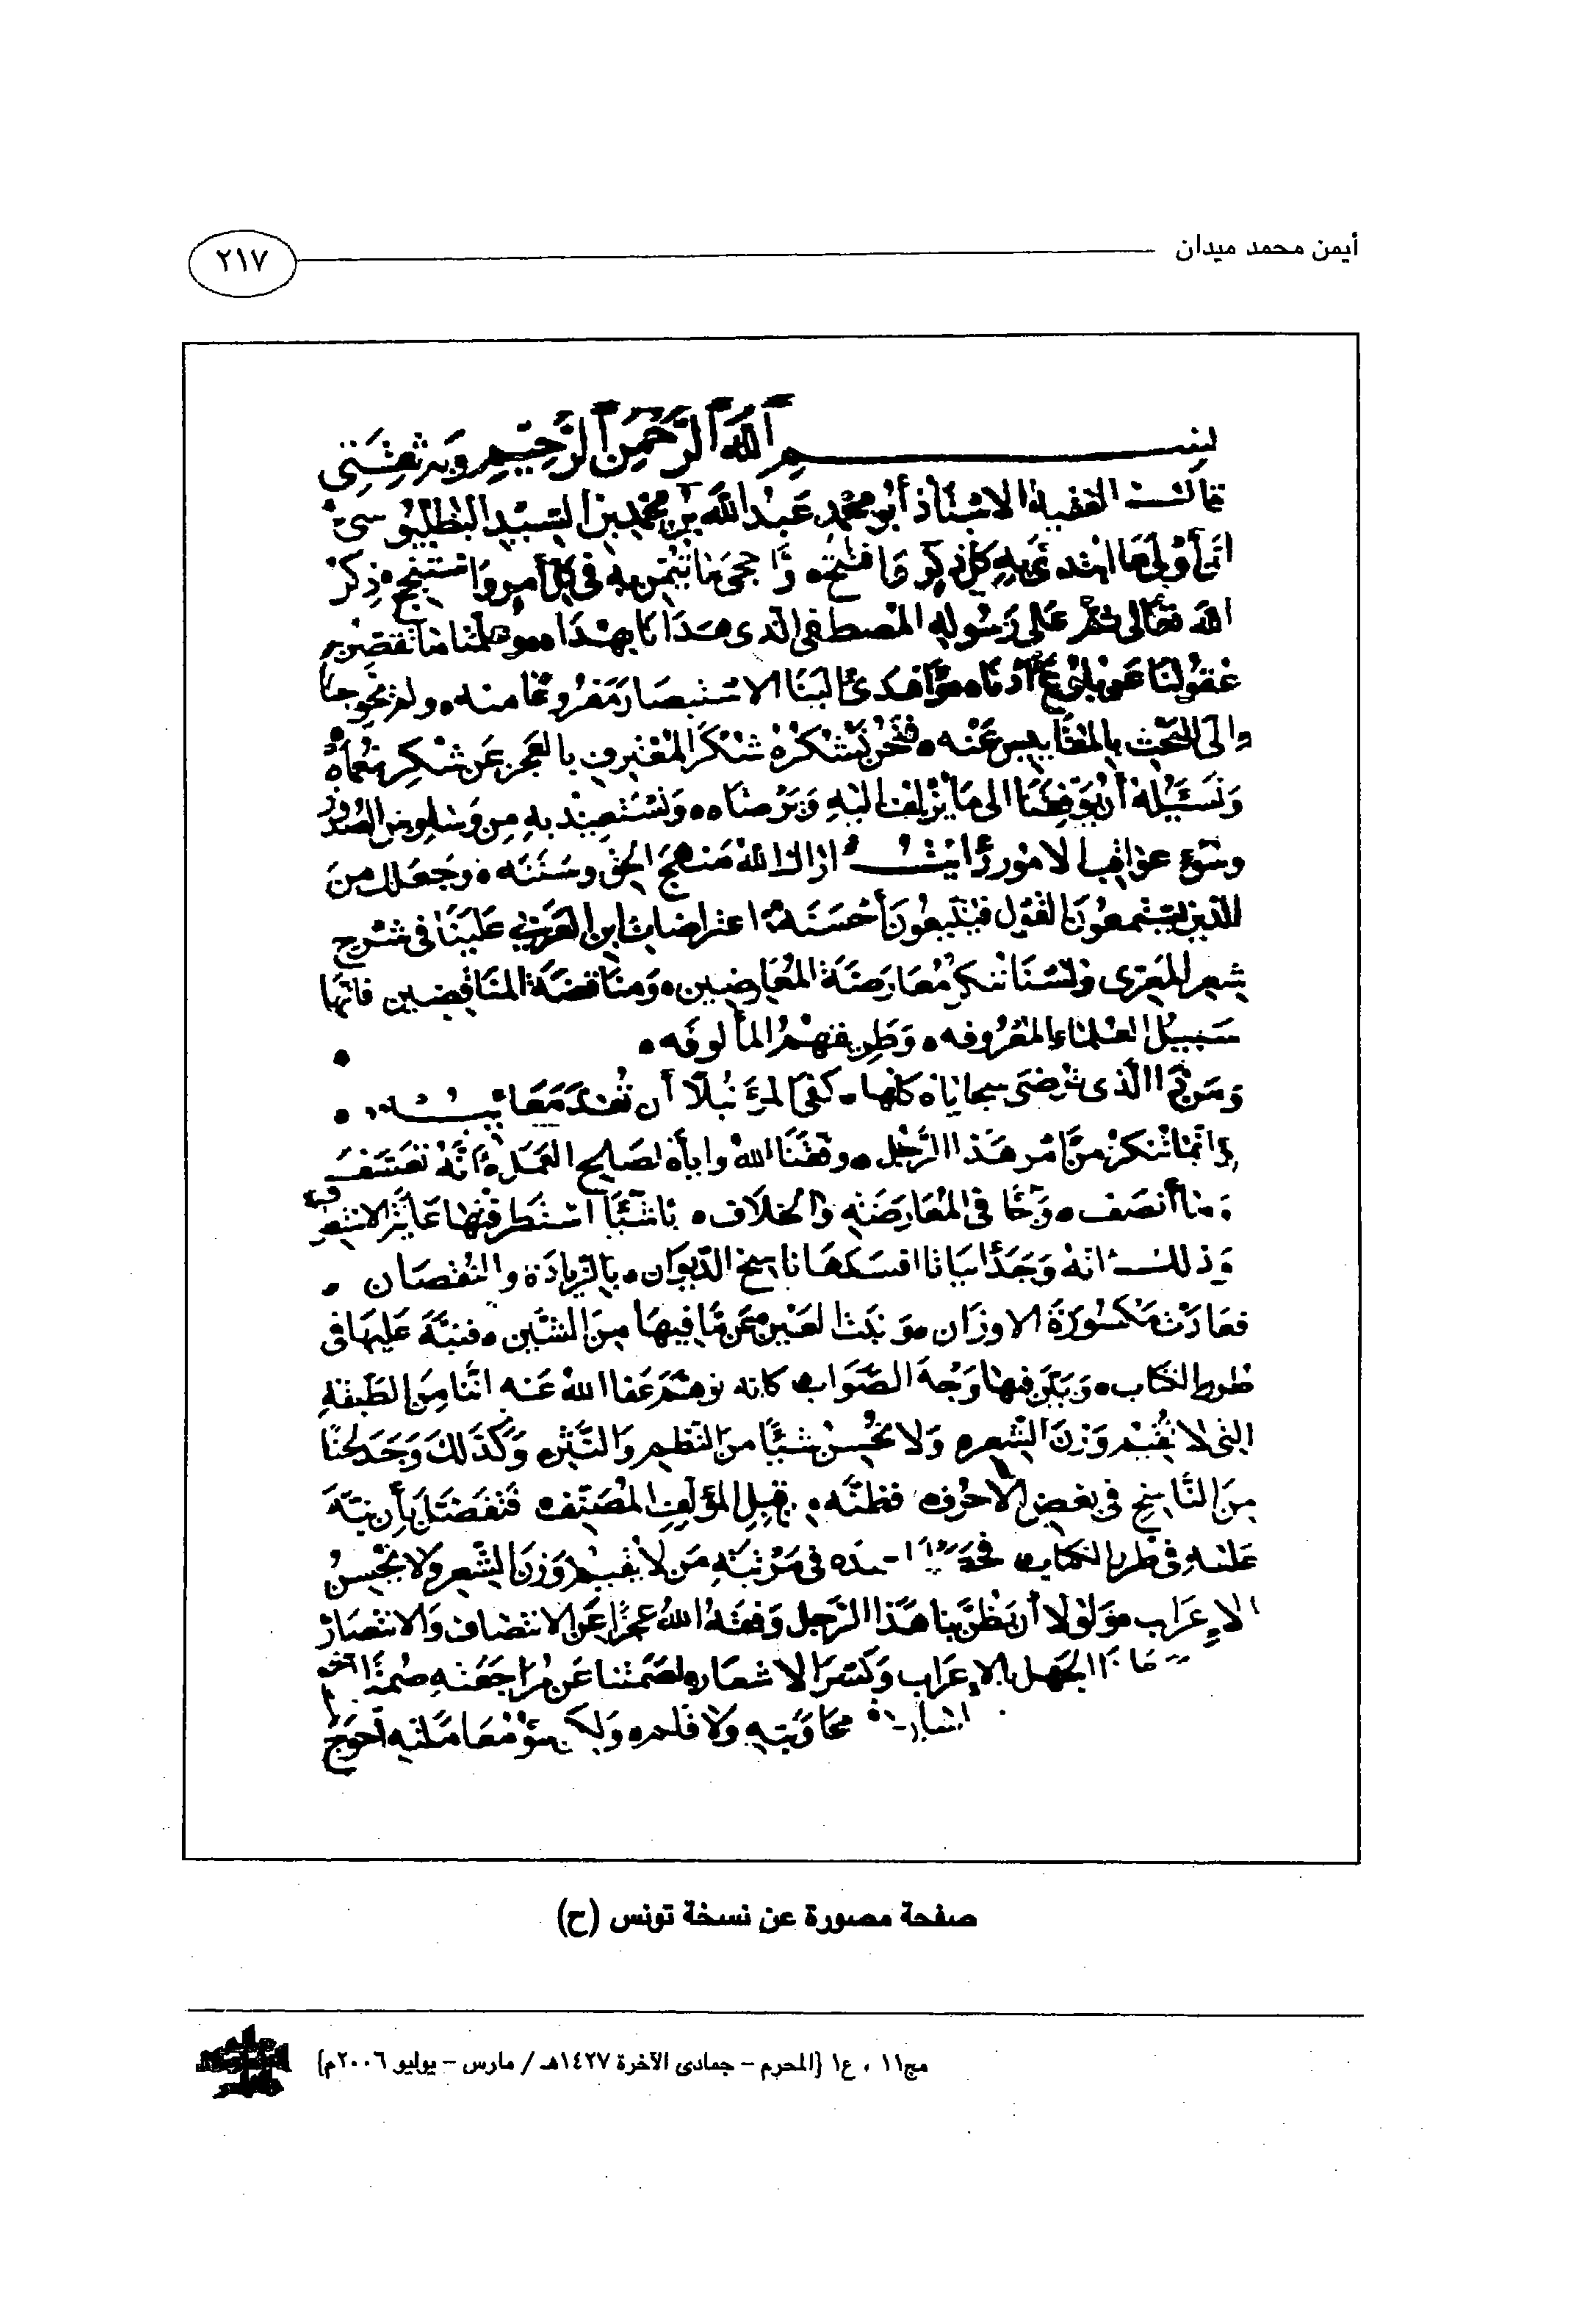 أيمن محمد ميدان
٢١٧
بسم الله الرحمن الرحيم وبه ثقتي
قال الفقيه الاستاذ أبو محمد عبد الله بن محمد بن السيد البطليوسي
ان أولى ما ابتدئ به كل ذكر وافتتح وأحجى ما تيمن به في كل أمر واستنجح ذكر
الله تعالى ثم على رسوله المصطفى الذي هدانا بهداه وحملنا ما تقصر
عقولنا عن بلوغ أدناه وأهدى الينا الاستبصار مفروغا منه ولم يحوجنا
الى البحث بالمقاييس عنه فنحن نشكره شكر المعترف بالعجز عن شكر نعماه
ونسئله أن يوفقنا الى ما يزلف اليه ويرضاه ونستعيذ به من وساوس الصدور
وسوء عواقب الامور رأيت اراك الله منهج الحق وسننه وجعلك من
الذين يستمعون القول فيتبعون أحسنه اعتراضات ابن العربي علينا في شرح
شعر المعري ولسنا ننكر معارضة المعارضين ومناقضة المناقضين فانها
سبيل العلماء المعروفه وطريقتهم المألوفه
ومن ذا الذي ترضى سجاياه كلها كفى المرء نبلا أن تعد معايبه
وانما ننكر من أمر هذا الرجل وفقنا الله واياه لصالح العمل انه تعسف
وما أنصف في المعارضه والخلاف باشيا
وذلك انه وجد أبياتا افسدها ناسخ الديوان بالزيادة والنقصان
فعادت مكسورة الاوزان نبت العين عن ما فيها من الشين فنبه عليها في
طرر الكتاب وبين فيها وجه الصواب كانه توهم عفا الله عنه اننا من الطبقة
التي لا تقيم وزن الشعر ولا تحسن شيئا من النظم والنثر وكذلك وجد لحنا
من الناسخ في بعض الاحرف فظنه من قبل المؤلف المصنف فتفضل بأن نبه
عليه في طرر الكتاب في مرتبة من لا يقيم وزن الشعر ولا يحسن
الاعراب ولولا أن يظن بنا هذا الرجل وفقه الله عجزا عن الانتصاف والانتصار
الجهل بالاعراب وكسر الاشعار لصمتنا عن مراجعته صمة
محاورته ولا فلم ولكن سوء معاملته أحوج
صفحة مصورة عن نسخة تونس (ح)
مج١١ ، ع١ (المحرم – جمادى الآخرة ١٤٢٧هـ / مارس – يوليو ٢٠٠٦م)